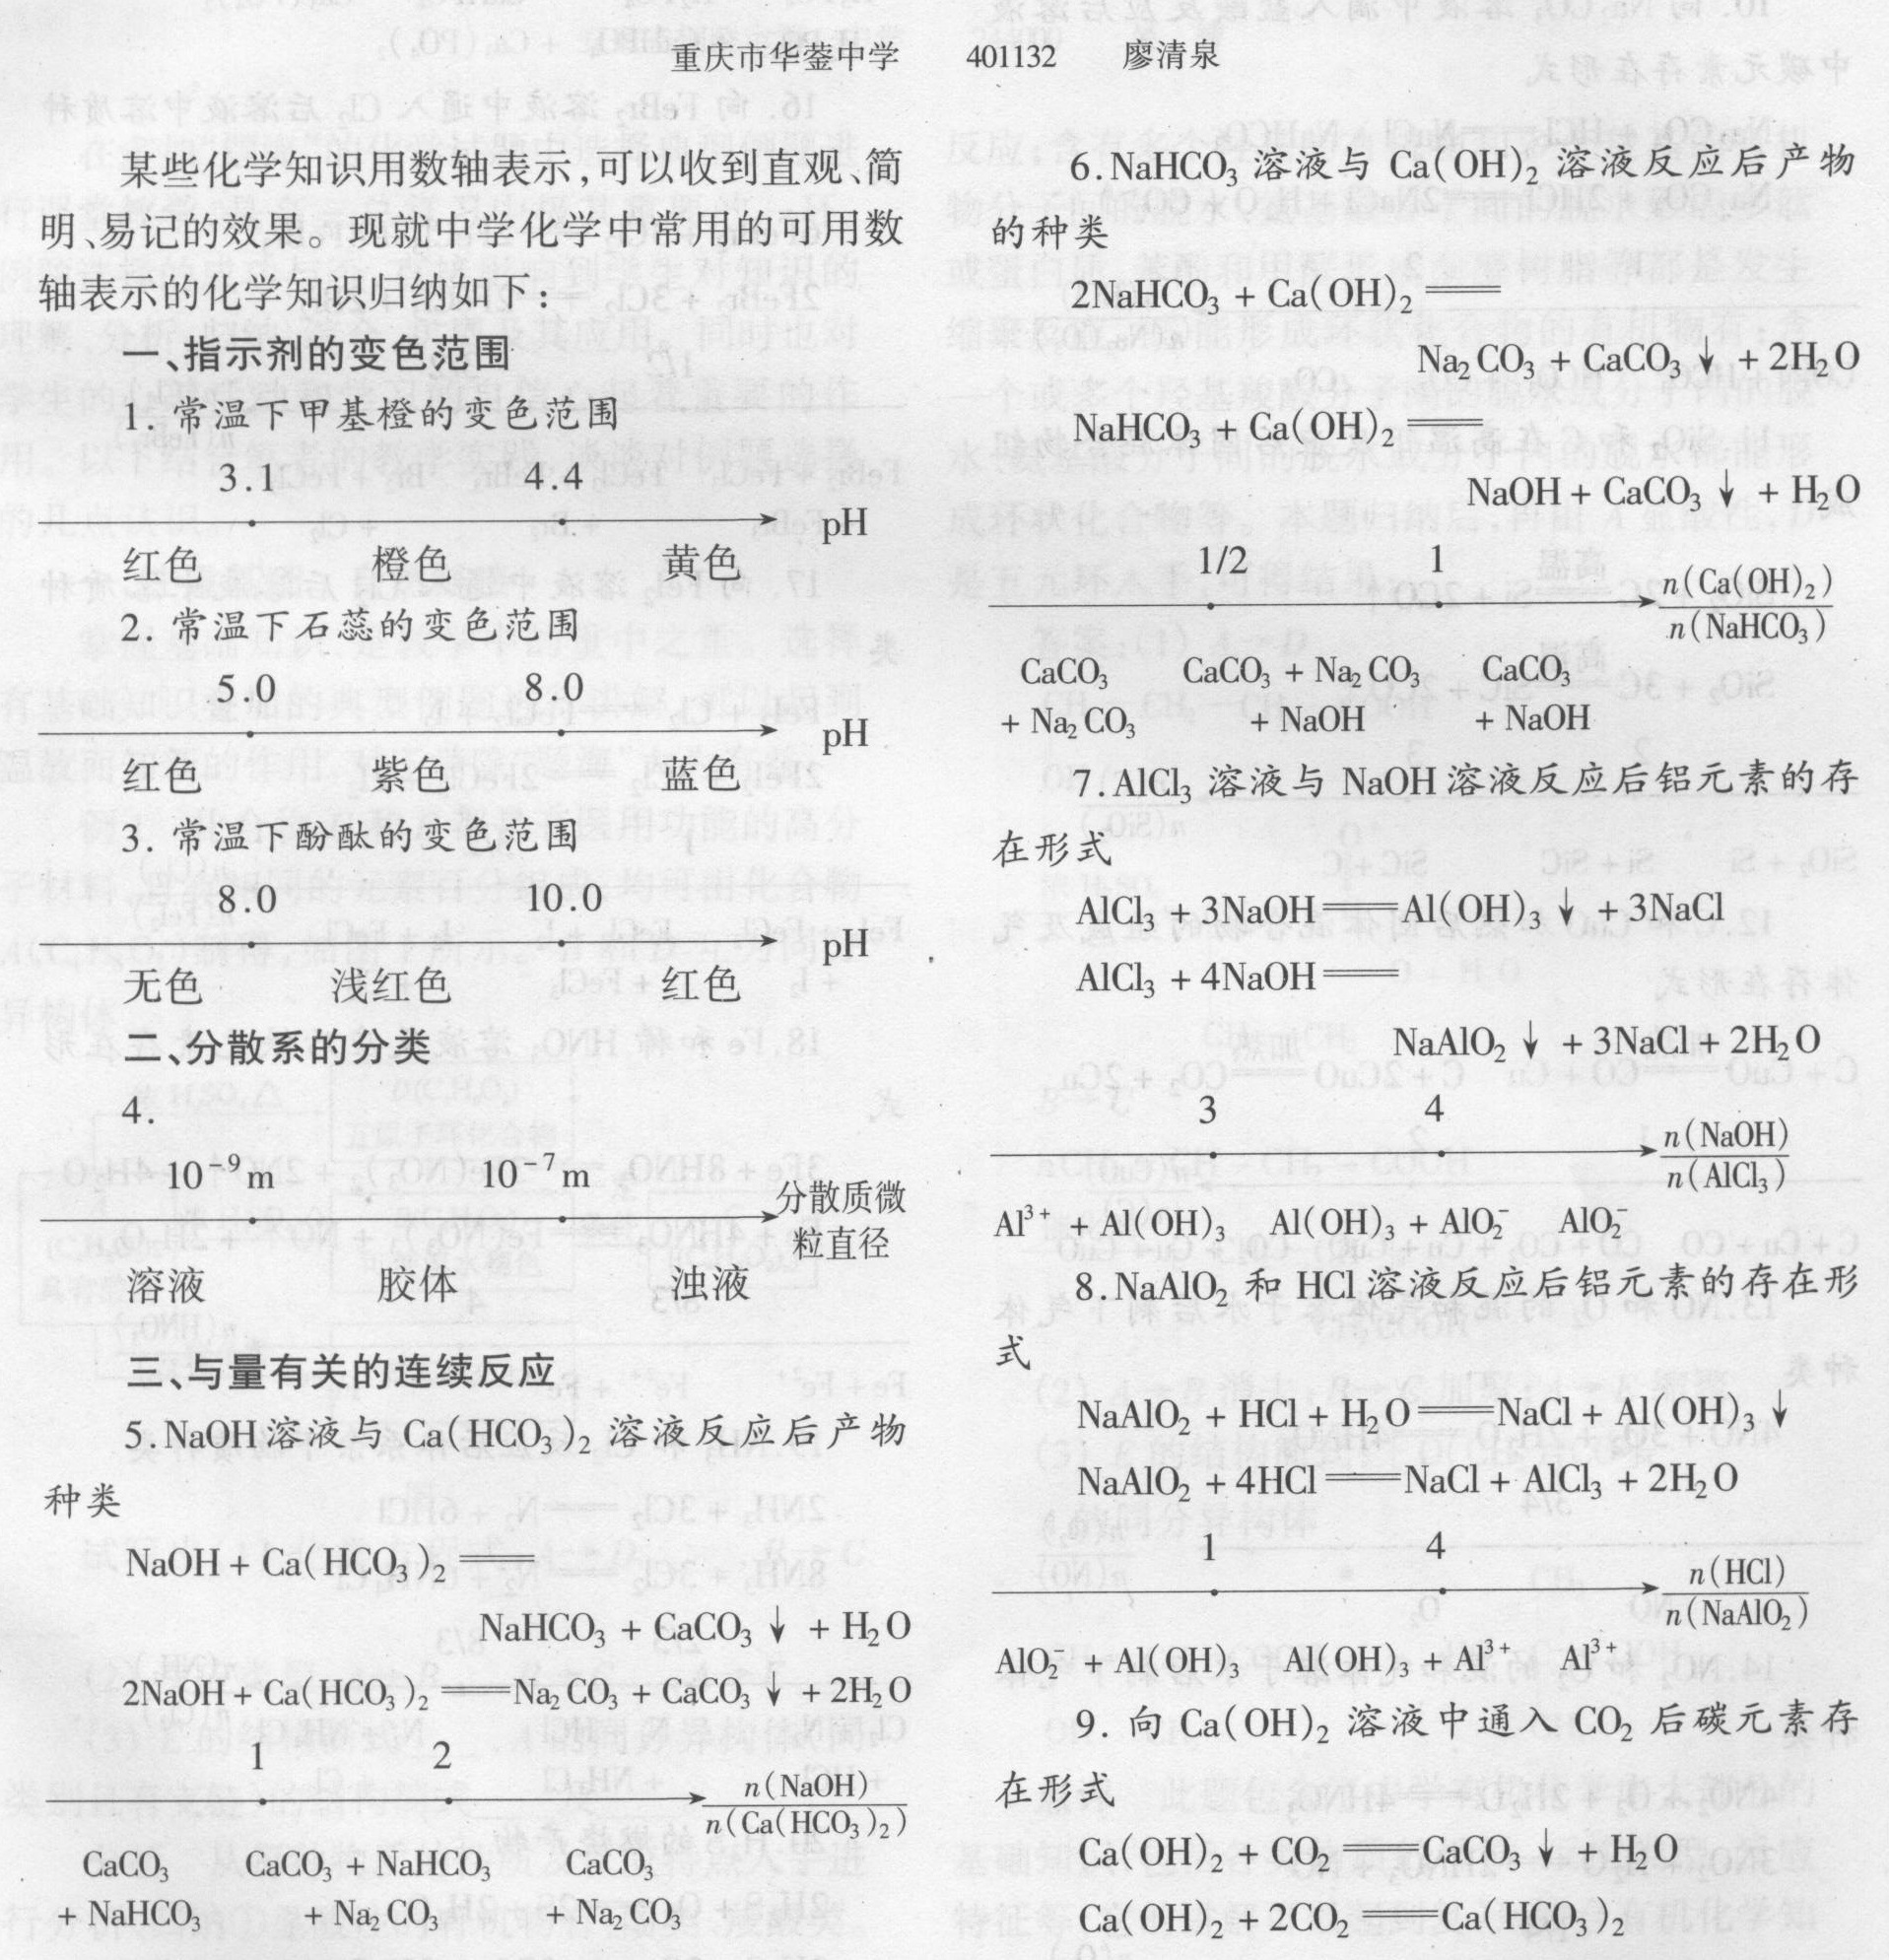 重庆市华蓥中学 401132 廖清泉
某些化学知识用数轴表示,可以收到直观、简
明、易记的效果。现就中学化学中常用的可用数
轴表示的化学知识归纳如下:
一、指示剂的变色范围
1. 常温下甲基橙的变色范围
3.1 4.4
pH
红色 橙色 黄色
2. 常温下石蕊的变色范围
5.0 8.0
pH
红色 紫色 蓝色
3. 常温下酚酞的变色范围
8.0 10.0
pH
无色 浅红色 红色
二、分散系的分类
4.
10⁻⁹ m 10⁻⁷ m
分散质微
粒直径
溶液 胶体 浊液
三、与量有关的连续反应
5.NaOH溶液与 Ca(HCO₃)₂ 溶液反应后产物
种类
NaOH + Ca(HCO₃)₂ ══
NaHCO₃ + CaCO₃↓ + H₂O
2NaOH + Ca(HCO₃)₂ ══ Na₂CO₃ + CaCO₃↓ + 2H₂O
1 2
n(NaOH)
n(Ca(HCO₃)₂)
CaCO₃ CaCO₃ + NaHCO₃ CaCO₃
+ NaHCO₃ + Na₂CO₃ + Na₂CO₃
6.NaHCO₃ 溶液与 Ca(OH)₂ 溶液反应后产物
的种类
2NaHCO₃ + Ca(OH)₂ ══
Na₂CO₃ + CaCO₃↓ + 2H₂O
NaHCO₃ + Ca(OH)₂ ══
NaOH + CaCO₃↓ + H₂O
1/2 1
n(Ca(OH)₂)
n(NaHCO₃)
CaCO₃ CaCO₃ + Na₂CO₃ CaCO₃
+ Na₂CO₃ + NaOH + NaOH
7.AlCl₃ 溶液与 NaOH溶液反应后铝元素的存
在形式
AlCl₃ + 3NaOH ══ Al(OH)₃↓ + 3NaCl
AlCl₃ + 4NaOH ══
NaAlO₂↓ + 3NaCl + 2H₂O
3 4
n(NaOH)
n(AlCl₃)
Al³⁺ + Al(OH)₃ Al(OH)₃ + AlO₂⁻ AlO₂⁻
8.NaAlO₂ 和 HCl溶液反应后铝元素的存在形
式
NaAlO₂ + HCl + H₂O ══ NaCl + Al(OH)₃↓
NaAlO₂ + 4HCl ══ NaCl + AlCl₃ + 2H₂O
1 4
n(HCl)
n(NaAlO₂)
AlO₂⁻ + Al(OH)₃ Al(OH)₃ + Al³⁺ Al³⁺
9. 向 Ca(OH)₂ 溶液中通入 CO₂ 后碳元素存
在形式
Ca(OH)₂ + CO₂ ══ CaCO₃↓ + H₂O
Ca(OH)₂ + 2CO₂ ══ Ca(HCO₃)₂